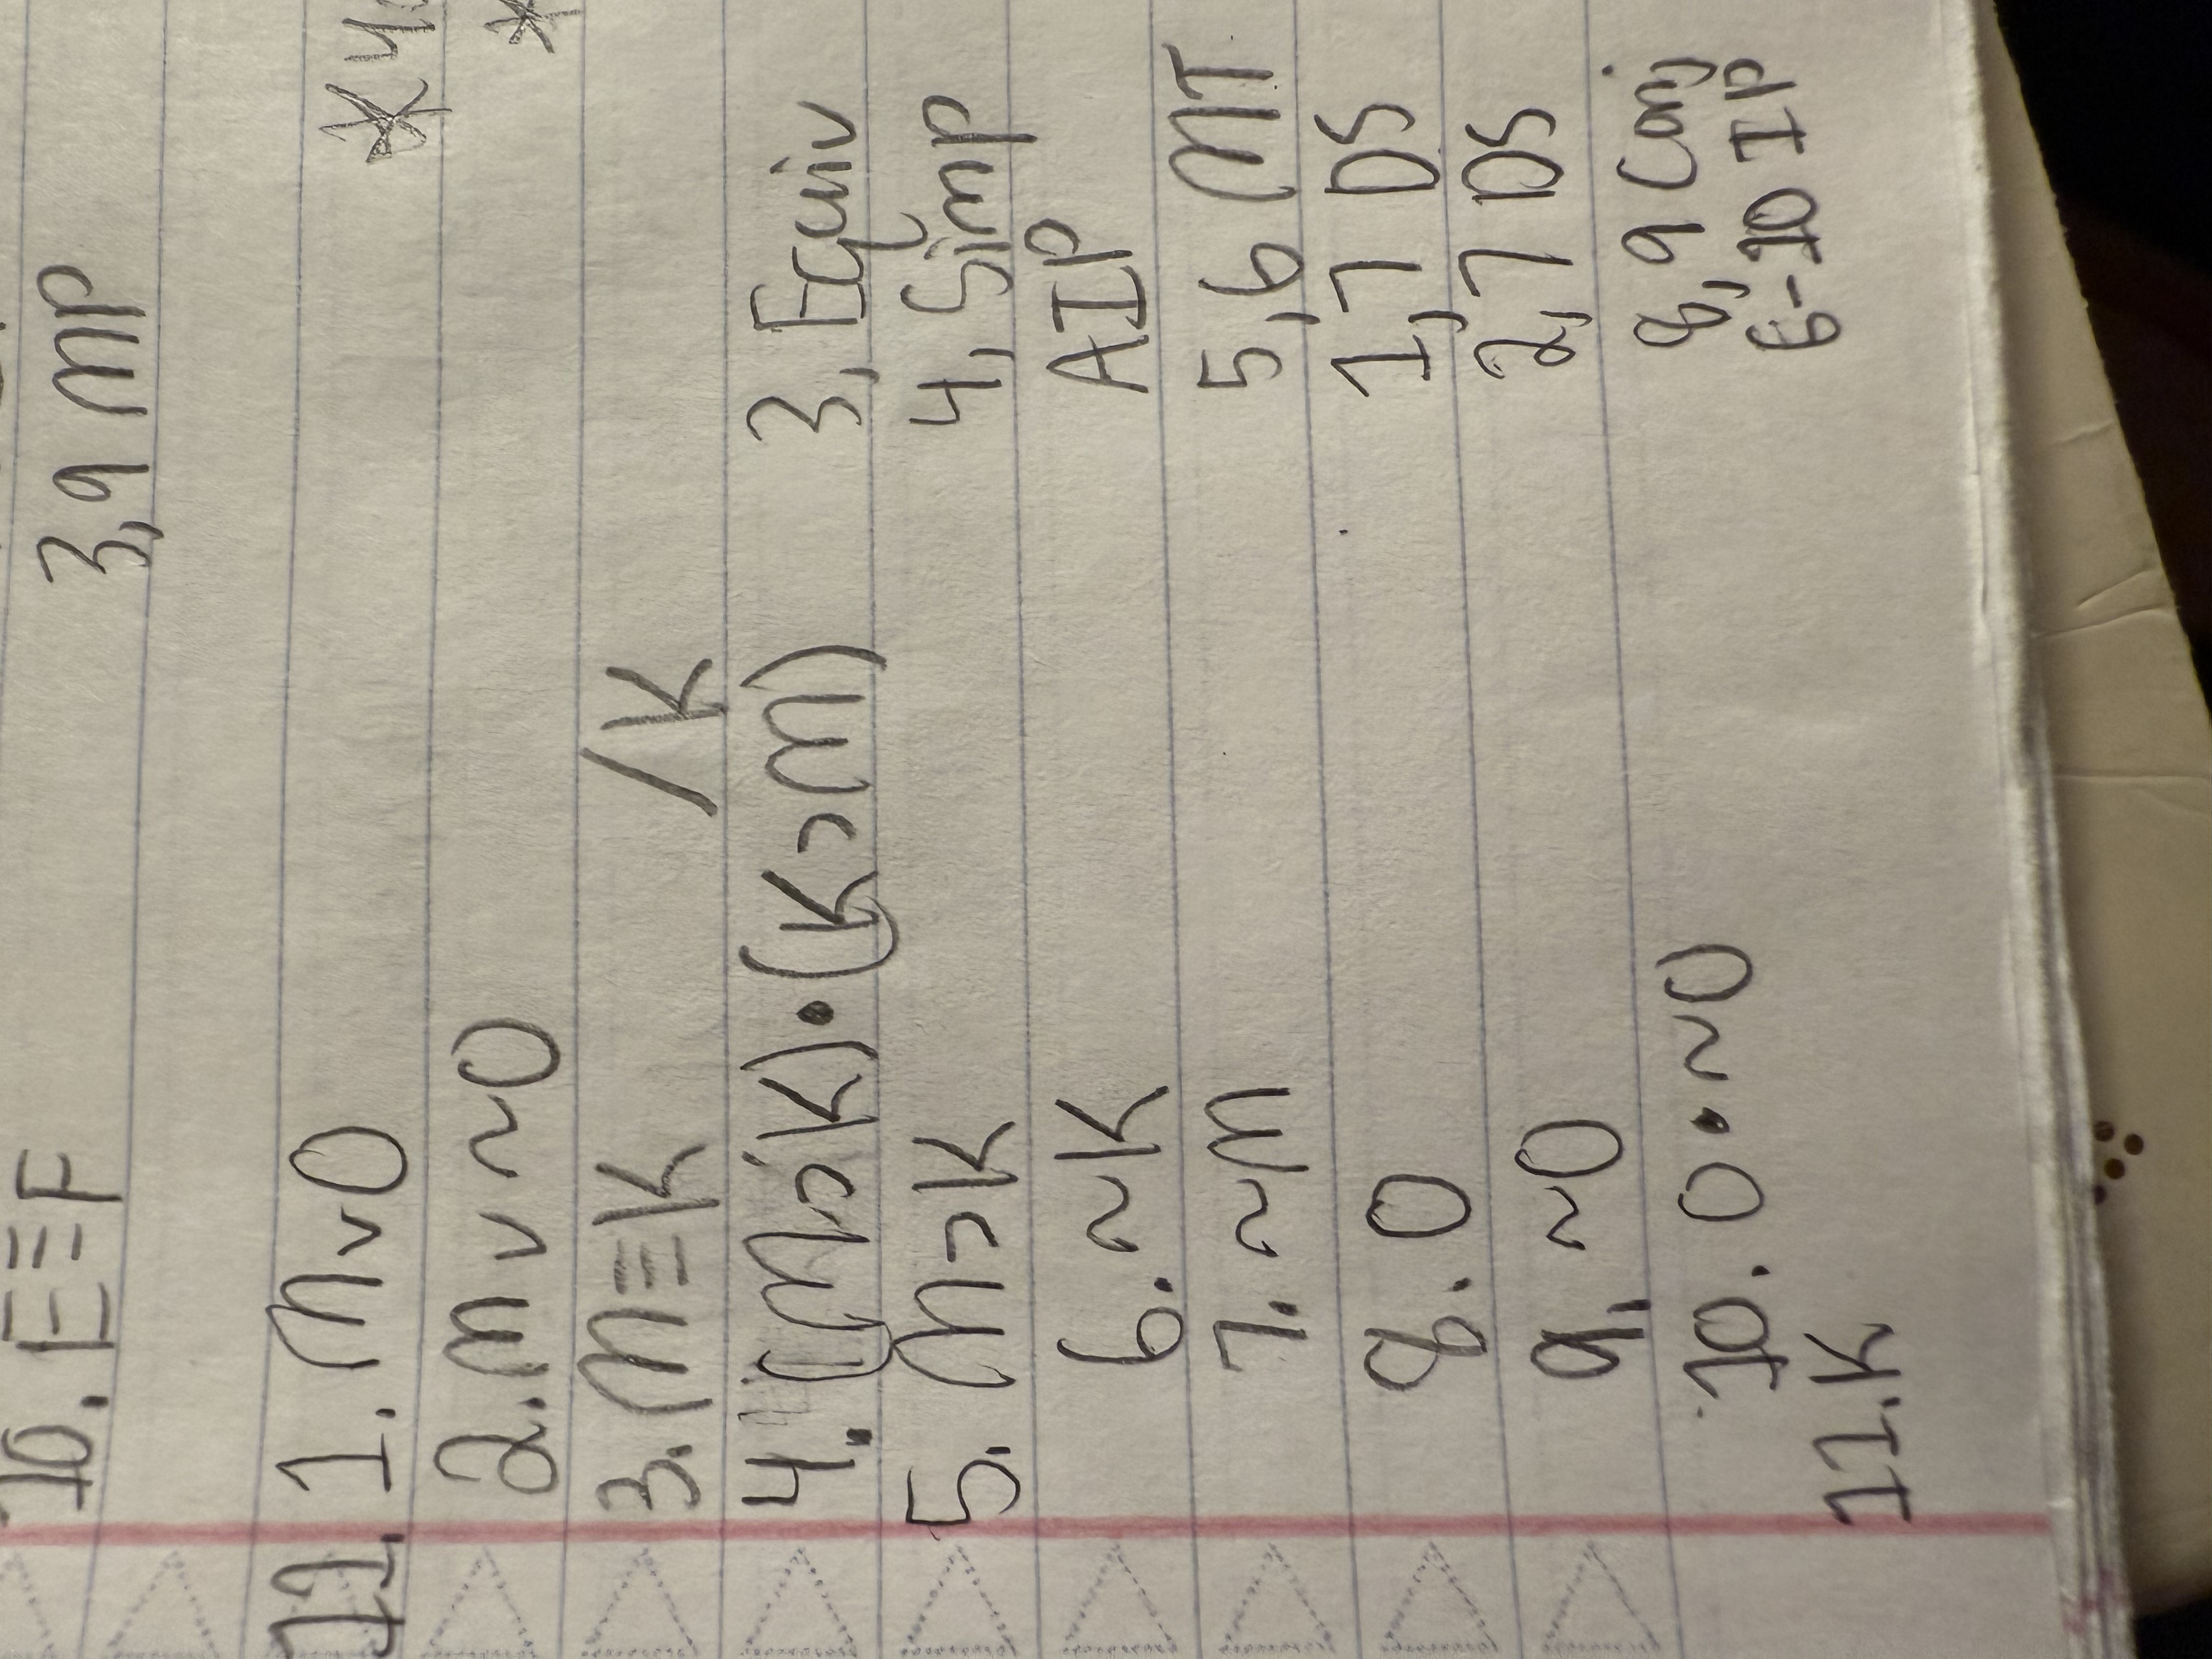 10. E≡F 3,9 MP
11. 1. M v O
2. M v ~O
3. M≡K /K
4. (M⊃K)•(K⊃M) 3, Equiv
5. M⊃K 4, Simp
6. ~K AIP
7. ~M 5,6 MT
8. O 1,7 DS
9. ~O 2,7 DS
10. O•~O 8,9 Conj
11. K 6-10 IP